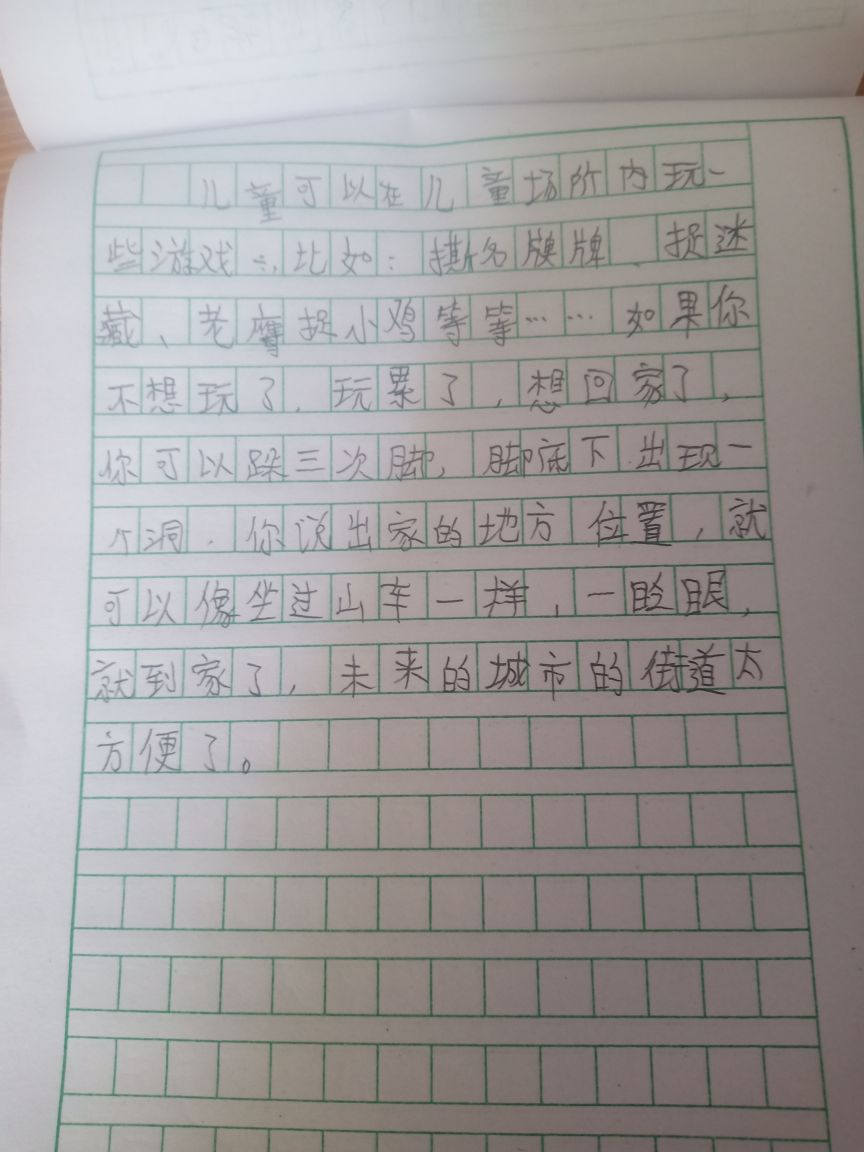 儿童可以在儿童场所内玩一
些游戏,比如:撕名牌牌、捉迷
藏、老鹰捉小鸡等等……如果你
不想玩了,玩累了,想回家了,
你可以跺三次脚,脚底下出现一
个洞.你说出家的地方位置,就
可以像坐过山车一样,一眨眼,
就到家了,未来的城市的街道太
方便了。